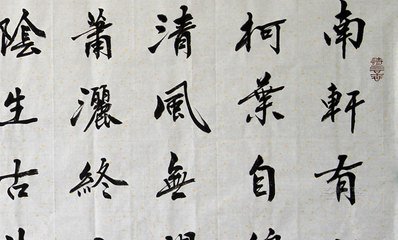 南軒有
柯葉自
清風無
蕭灑終
陰生古